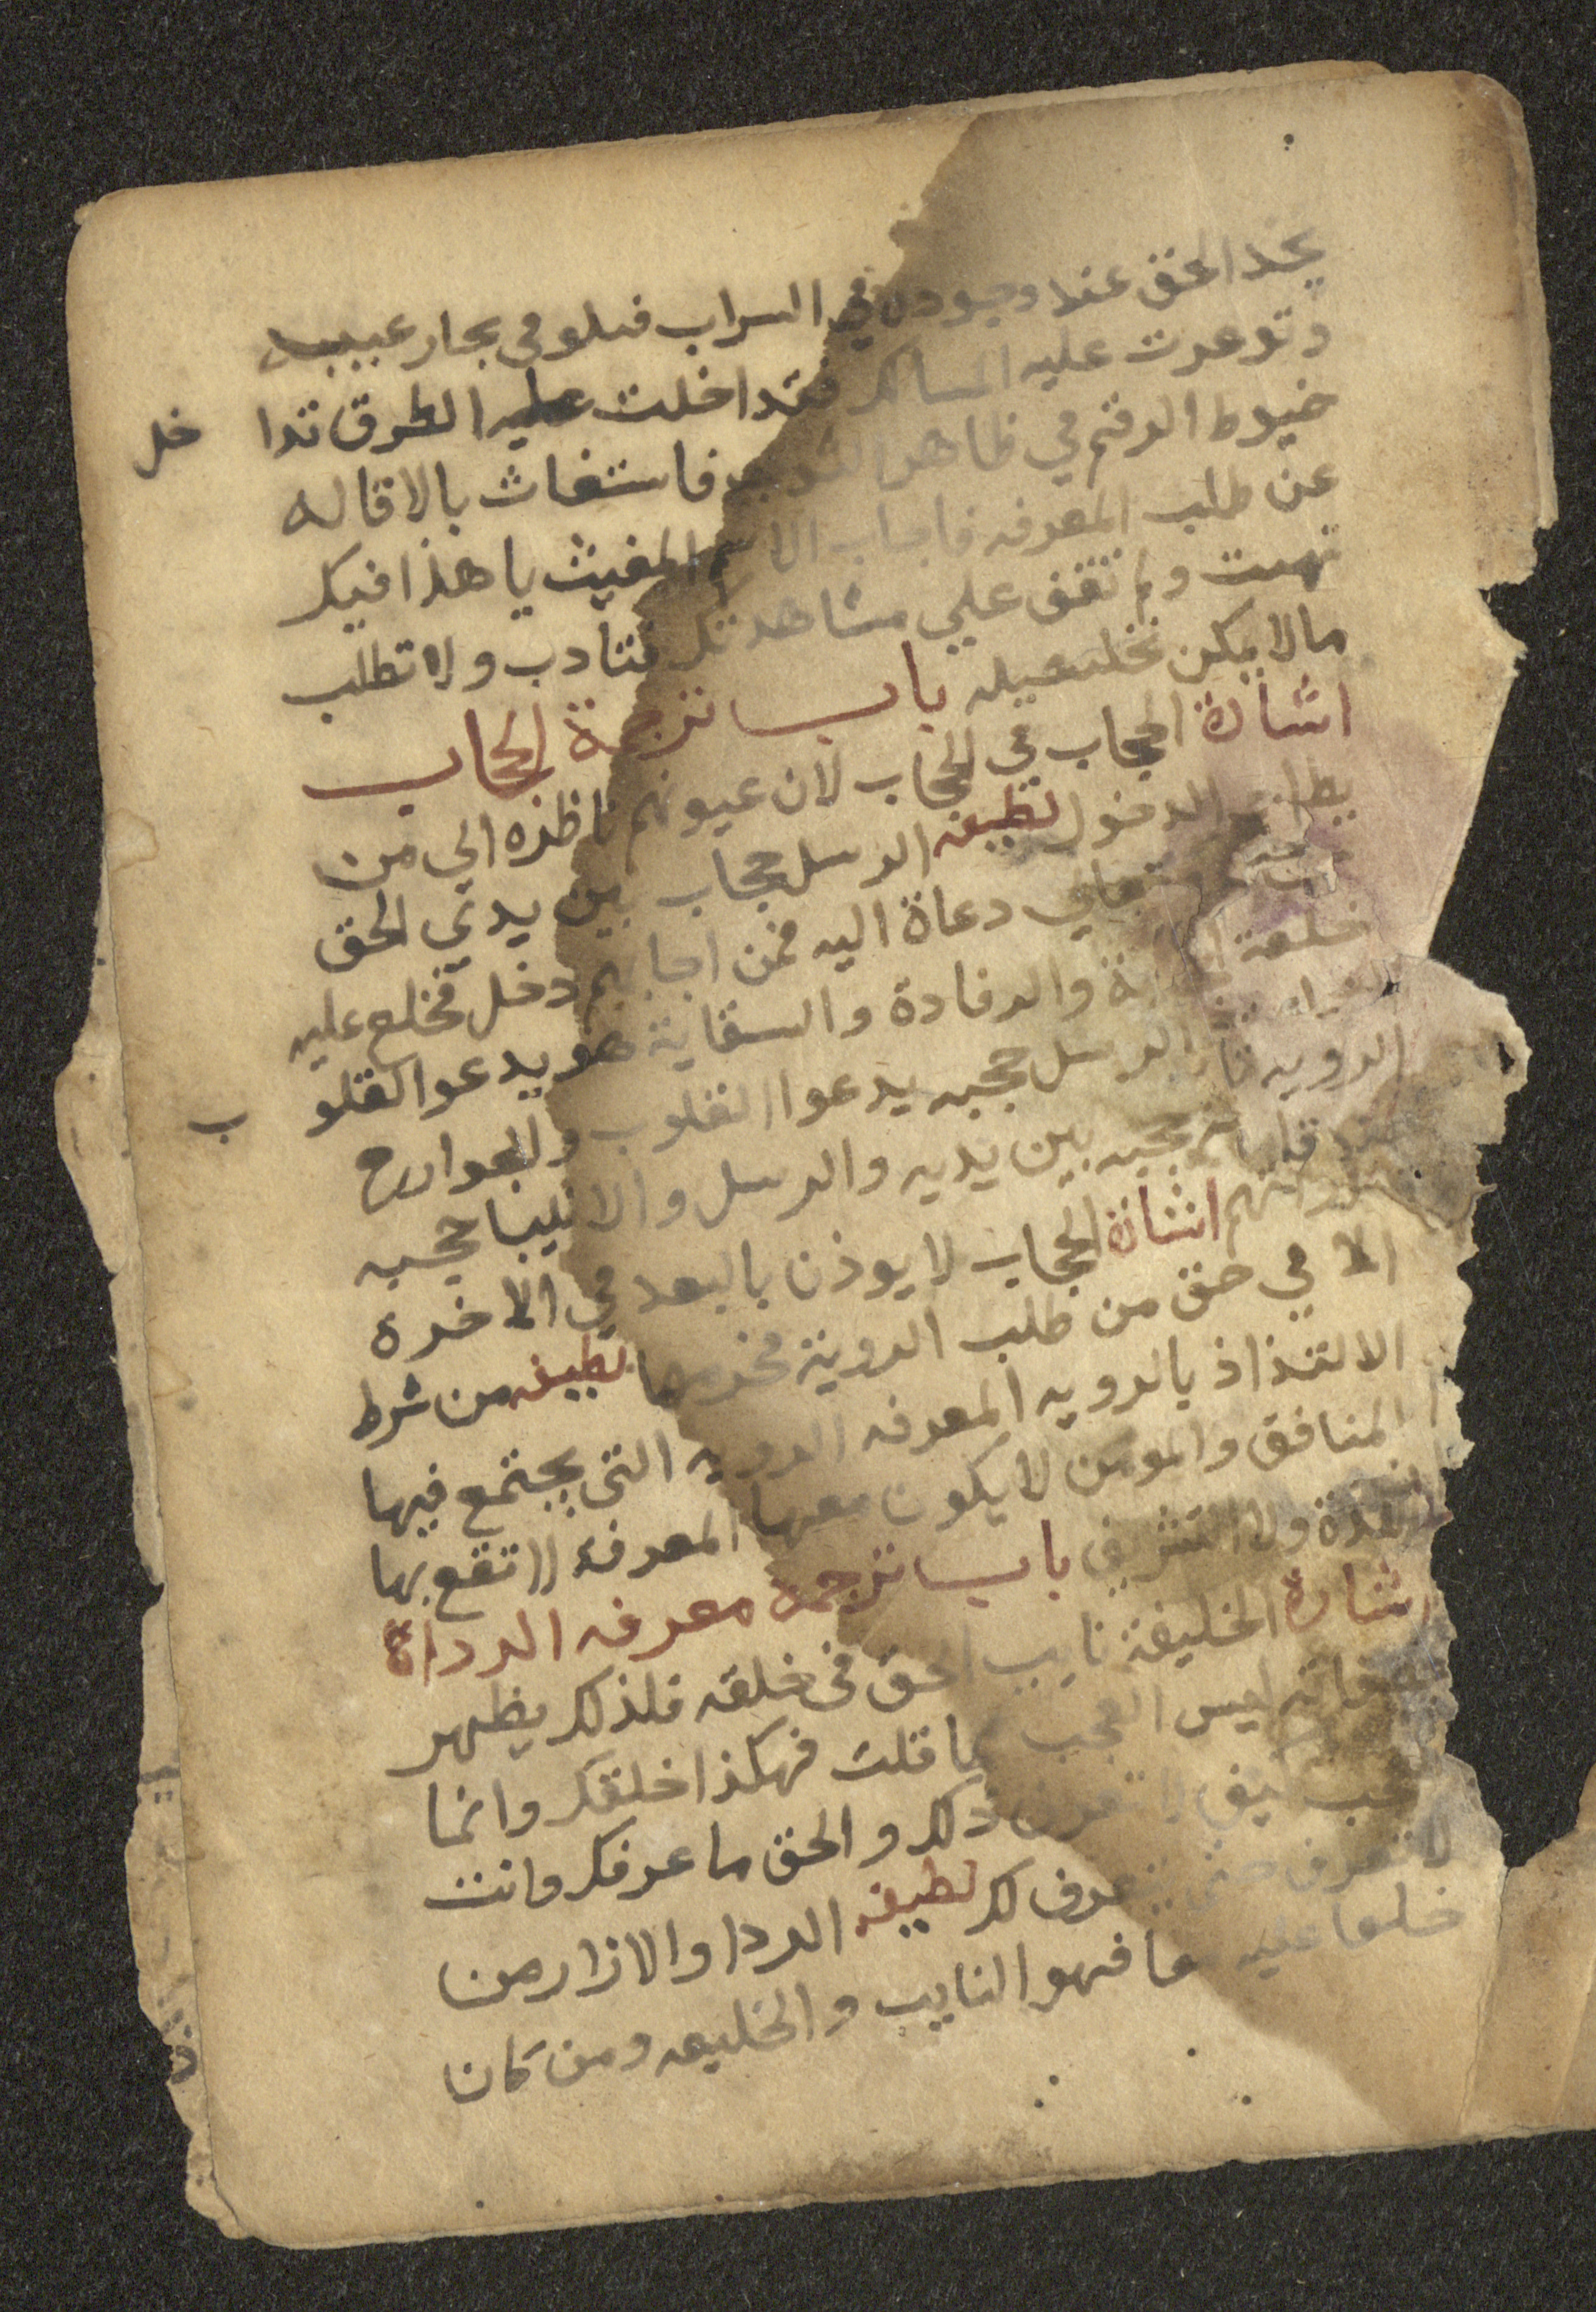 يجد الحق عند وجوده في السراب فيلوم في بحار عبيب
وتوعرت عليه المسالك فتداخلت عليه الطرق تداخل
خيوط الرقم في ظاهر الثوب فاستغاث بالاقاله
عن طلب المعرفه فاجاب الاسم المغيث يا هذا فيك
تهت ولم تقف علي مشاهدتك فتادب ولا تطلب
مالا يمكن تحصيله باب ترجمة الحجاب
اشارة الحجاب في الحجاب لان عيونهم ناظره الي من
يطلب الدخول لطيفه الرسل حجاب بين يدي الحق
تعالي دعاة اليه فمن اجابهم دخل فخلع عليه
خلعة والرفادة والسقاية هو يدعوا القلوب
الرسل حجبه يدعوا القلوب والجوارح
الرويه حجبه بين يديه والرسل والانبيا حجبه
اشارة الحجاب لا يوذن بالبعد في الاخره
الا في حق من طلب الروية فحرمها لطيفه من شرط
الالتذاذ بالرويه المعرفه الرويه التي يجتمع فيها
المنافق والمومن لا يكون معها المعرفه لا تقع بها
اللذة ولا التشريف باب ترجمة معرفه الرداة
اشارة الخليفة نايب الحق في خلقه فلذلك يظهر
بصفاته ليس العجب يا قلت فهكذا خلقك وانما
العجب كيف لا تعرف ذلك والحق ما عرفك وانت
لا تعرف حتي يتعرف لك لطيفه الردا والازار من
خلعا عليه معا فهو النايب والخليفه ومن كان